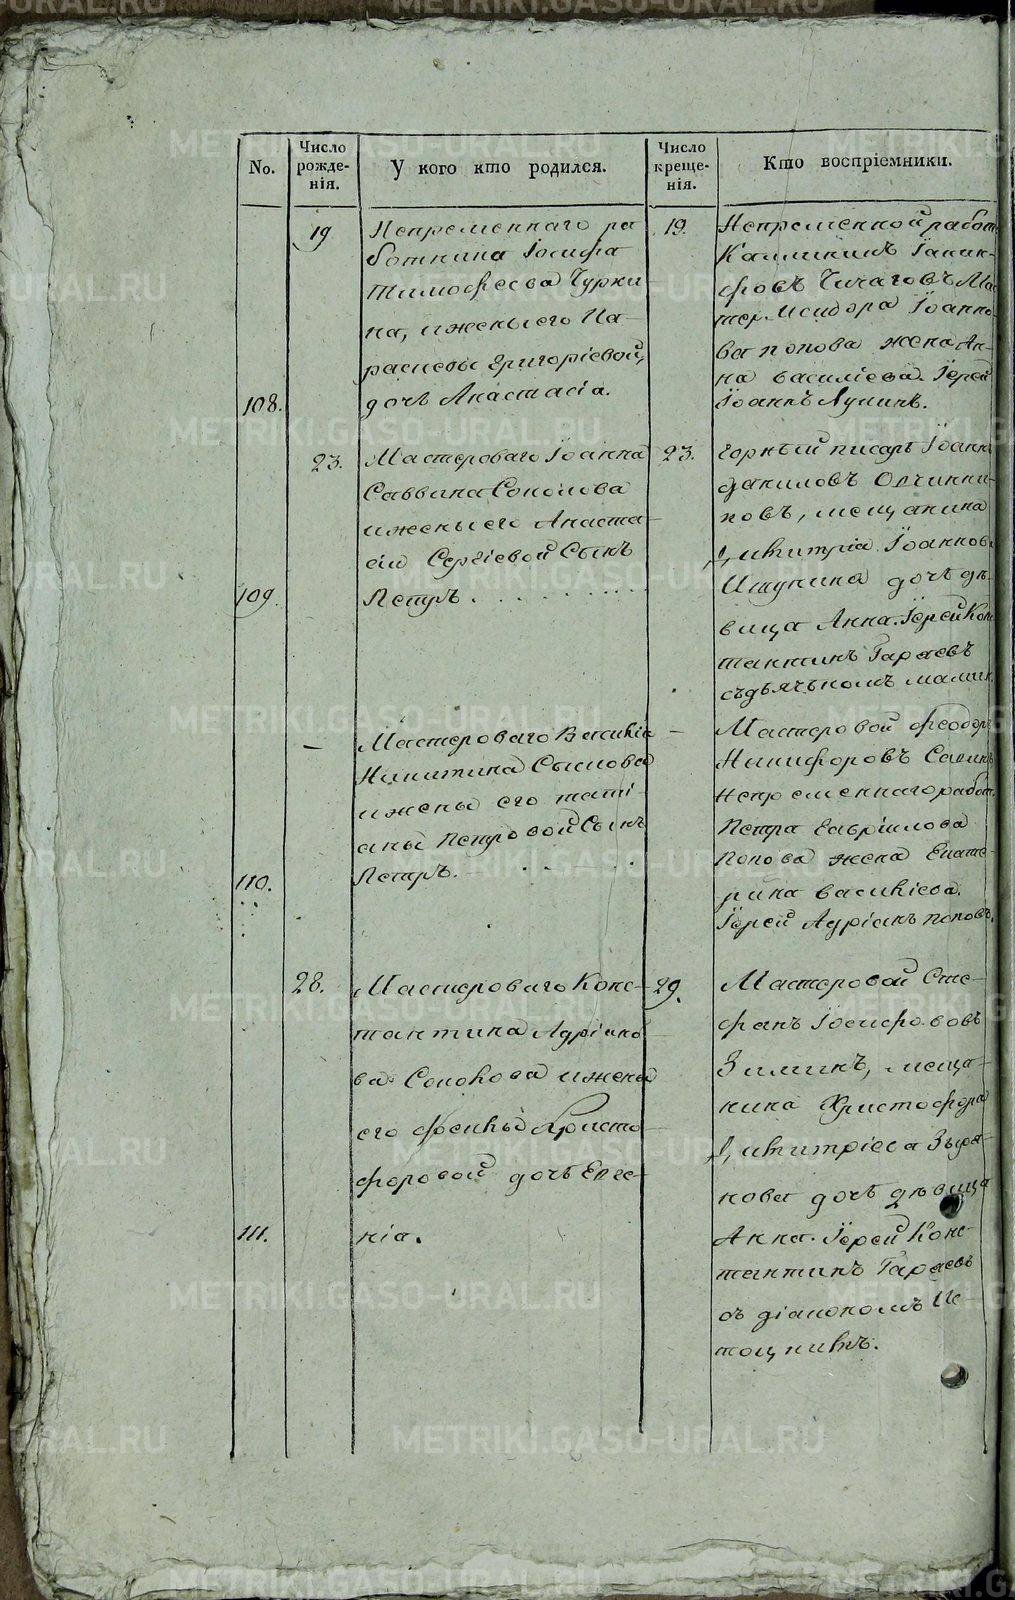 No.
Число рожде-нія.
У кого кто родился.
Число креще-нія.
Кто воспріемники.
108.
19
Непременнаго ра
ботника Іосифа
Тимофеева Чурки
на, ижены его Па-
раскевы Григоріевой,
дочь Анастасія.
19.
Непременной работ
Каллиникъ Іакин-
фовъ Чичаговъ Мас
тер Исидора Іоанно-
ва попова жена Ан-
на василіева. Іерей
Іоаннъ Лукинъ.
109.
23.
Мастероваго Іоанна
Саввина Соколова
ижены его Анаста-
сіи Сергіевой Сынъ
Петръ.
23.
горный писарь Іоаннъ
даниловъ Овчинни-
ковъ, мещанина
Димитрія Іоаннова
дочь дѣ-
вица Анна. Іерей Конс
тантинъ Гараевъ
съдьячькомъ мамин
110.
—
Мастероваго Василія
Никитина Сылова
ижены его тати-
аны Петровой Сынъ
Петръ.
—
Мастеровой феодоръ
Никифоровъ Савинъ
Непременнаго работ.
Петра гавріилова
Попова жена Екате-
рина василіева.
Іерей Адріанъ поповъ.
111.
28.
Мастероваго Конс-
тантина Адріано
ва Соколова ижены
его феклы Христо-
форовой дочь Евге-
нія.
29.
Мастеровой Сте-
фанъ Іосифововъ
Зиминъ, меща-
нина Христофора
Димитріева Зыря-
нова дочь дѣвица
Анна. Іерей Конс-
тантинъ Гараевъ
съ діакономъ Ис-
тощикъ.
METRIKI.GASO-URAL.RU